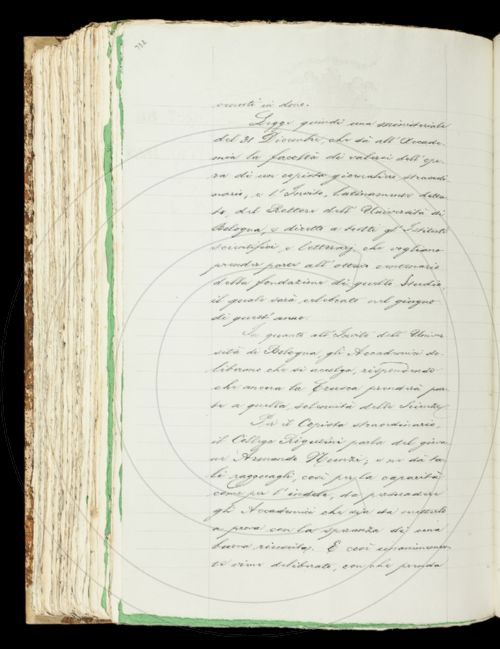 ricevuti in dono.
Legge quindi una ministeriale
del 31 Dicembre, che dà all'Accade-
mia la facoltà di valersi dell'ope-
ra di un copista giornaliero straordi-
nario, e l'Invito, latinamente detta-
to, del Rettore dell'Università di
Bologna, e diretto a tutti gl'Istituti
scientifici e letterarj, che vogliano
prender parte all'ottavo centenario
della fondazione di quello Studio,
il quale sarà celebrato nel giugno
di quest'anno.
In quanto all'Invito dell'Univer-
sità di Bologna, gli Accademici de-
liberano che si accolga, rispondendo
che ancora la Crusca prenderà par-
te a quella solennità della Scienza.
Per il Copista straordinario,
il Collega Rigutini parla del giova-
ne Armando Nunzi, e ne dà ta-
li ragguagli, così per la capacità
come per l'indole, da persuadere
gli Accademici che sia da mettersi
a prova con la speranza di una
buona riuscita. E così unanimemen-
te viene deliberato, con che prenda